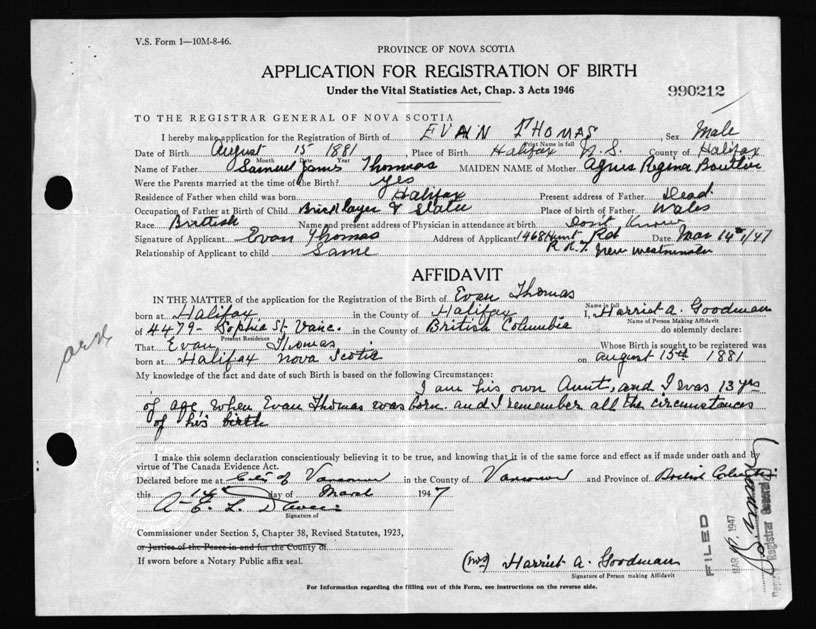 V.S. Form 1—10M-8-46.
PROVINCE OF NOVA SCOTIA
APPLICATION FOR REGISTRATION OF BIRTH
Under the Vital Statistics Act, Chap. 3 Acts 1946
990212
TO THE REGISTRAR GENERAL OF NOVA SCOTIA
I hereby make application for the Registration of Birth of EVAN THOMAS, Sex Male
Print Name in full
Date of Birth August 15 1881, Place of Birth Halifax N.S. County of Halifax
Month Date Year
Name of Father Samuel James Thomas MAIDEN NAME of Mother Agnes Regina Boutlier
Were the Parents married at the time of the Birth? yes
Residence of Father when child was born Halifax Present address of Father Dead
Occupation of Father at Birth of Child Bricklayer & Place of birth of Father Wales
Race British Name and present address of Physician in attendance at birth Don't Know
Signature of Applicant Evan Thomas Address of Applicant 1468 Hunt Rd Date Mar 14th/47
R.R.7. New Westminster
Relationship of Applicant to child Same
AFFIDAVIT
IN THE MATTER of the application for the Registration of the Birth of Evan Thomas
Name in full
born at Halifax in the County of Halifax I, Harriet A. Goodman
Name of Person Making Affidavit
of 4479- Sophia St. Vanc. in the County of British Columbia do solemnly declare:
Present Residence
That Evan Thomas Whose Birth is sought to be registered was
born at Halifax Nova Scotia on August 15th 1881
My knowledge of the fact and date of such Birth is based on the following Circumstances:
I am his own Aunt, and I was 13 yrs
of age, when Evan Thomas was born. and I remember all the circumstances
of his birth
I make this solemn declaration conscientiously believing it to be true, and knowing that it is of the same force and effect as if made under oath and by
virtue of The Canada Evidence Act.
Declared before me at City of Vancouver in the County of Vancouver and Province of British Columbia
this 14 day of March 1947
Signature of
Commissioner under Section 5, Chapter 38, Revised Statutes, 1923,
or Justice of the Peace in and for the County of
If sworn before a Notary Public affix seal.
(Mrs) Harriet A. Goodman
Signature of Person making Affidavit
For Information regarding the filling out of this Form, see instructions on the reverse side.
FILED
MAR 1947
Registrar General